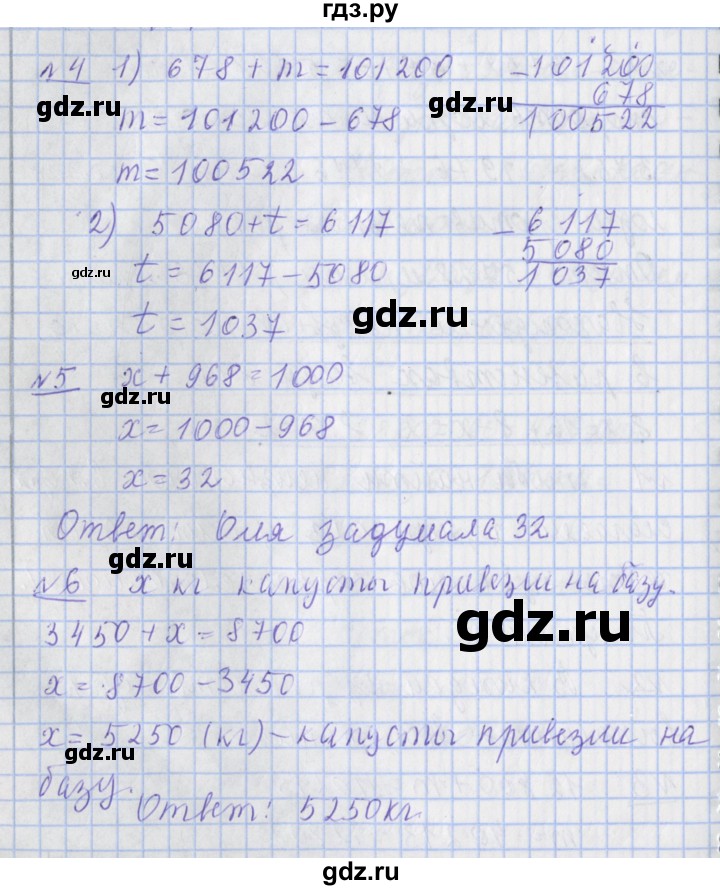 гдз.рф
№4 1) 678 + m = 101200
- 101200
gdz.ru gdz.ru
678
m = 101200 - 678
100522
m = 100522
2) 5080 + t = 6117
- 6117
5080
gdz.ru
t = 6117 - 5080
1037
gdz.ru
t = 1037
№5 x + 968 = 1000
x = 1000 - 968
x = 32
Ответ: Оля задумала 32
gdz.ru
№6 x кг капусты привезли на базу.
gdz.ru
3450 + x = 8700
x = 8700 - 3450
x = 5250 (кг) - капусты привезли на
gdz.ru
базу.
Ответ: 5250 кг.
gdz.ru
gdz.ru